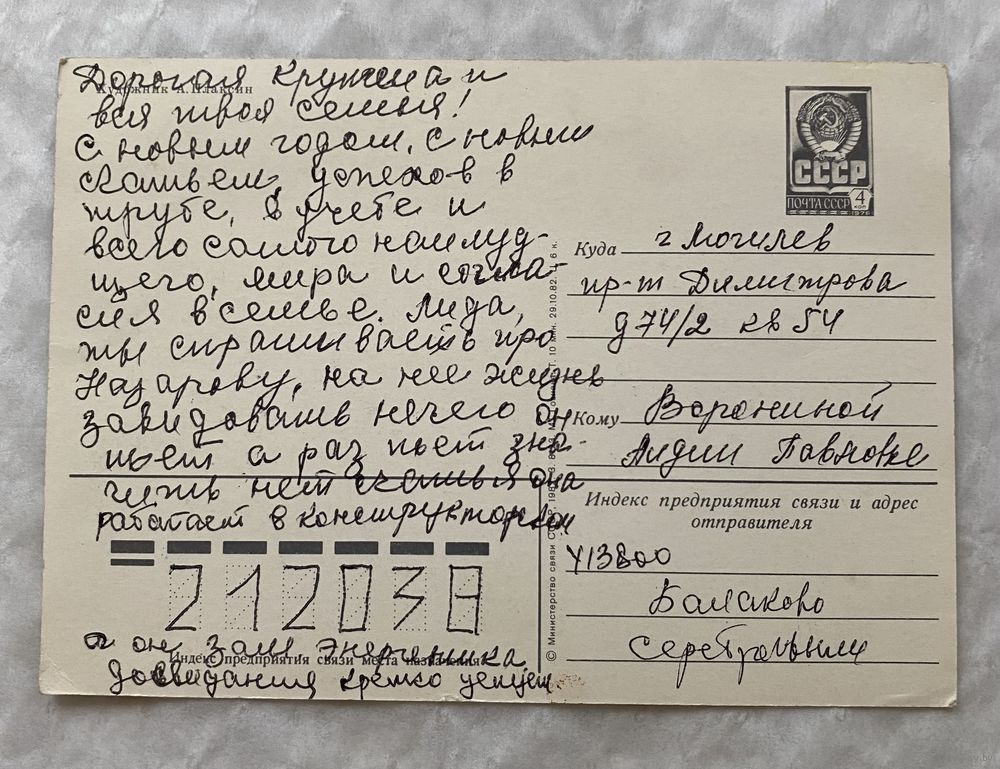 Художник А. Плаксин
Дорогая и
вся твоя семья!
С новым годом, с новым
счастьем, успехов в
труде, в учебе и
всего самого наилуд-
щего, мира и согла-
сия в семье. Лида,
ты спрашиваешь про
Назарову, на нее жизнь
завидовать нечего он
пьет а раз пьет зна-
чить нет счастья она
работает в конструкторском
212038
Индекс предприятия связи места назначения
а он зам энергетика
Досвидания крепко целуем.
СССР
ПОЧТА СССР
4
коп
1976
Куда г Могилев
пр-т Димитрова
д 74/2 кв 54
Кому Ворониной
Лидии Павловне
Индекс предприятия связи и адрес
отправителя
413800
Балаково
Серебряковым
© Министерство связи СССР. 29.10.82.